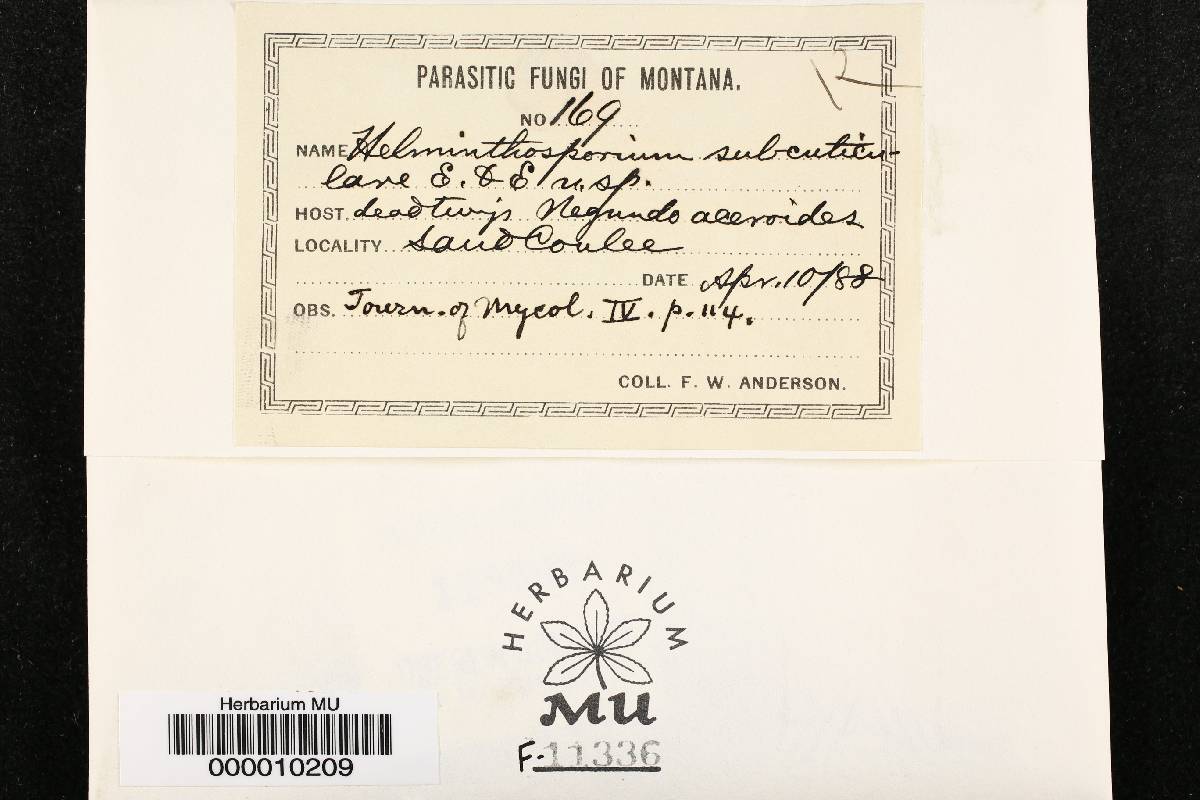 PARASITIC FUNGI OF MONTANA.
12
NO 169
NAME Helminthosporium subcuticu-
lare E. & E n. sp.
HOST. dead twigs Negundo aceroides
LOCALITY Sand Coulee
DATE Apr. 10/88
OBS. Journ. of Mycol. IV. p. 114.
COLL. F. W. ANDERSON.
HERBARIUM
MU
F-11336
Herbarium MU
000010209